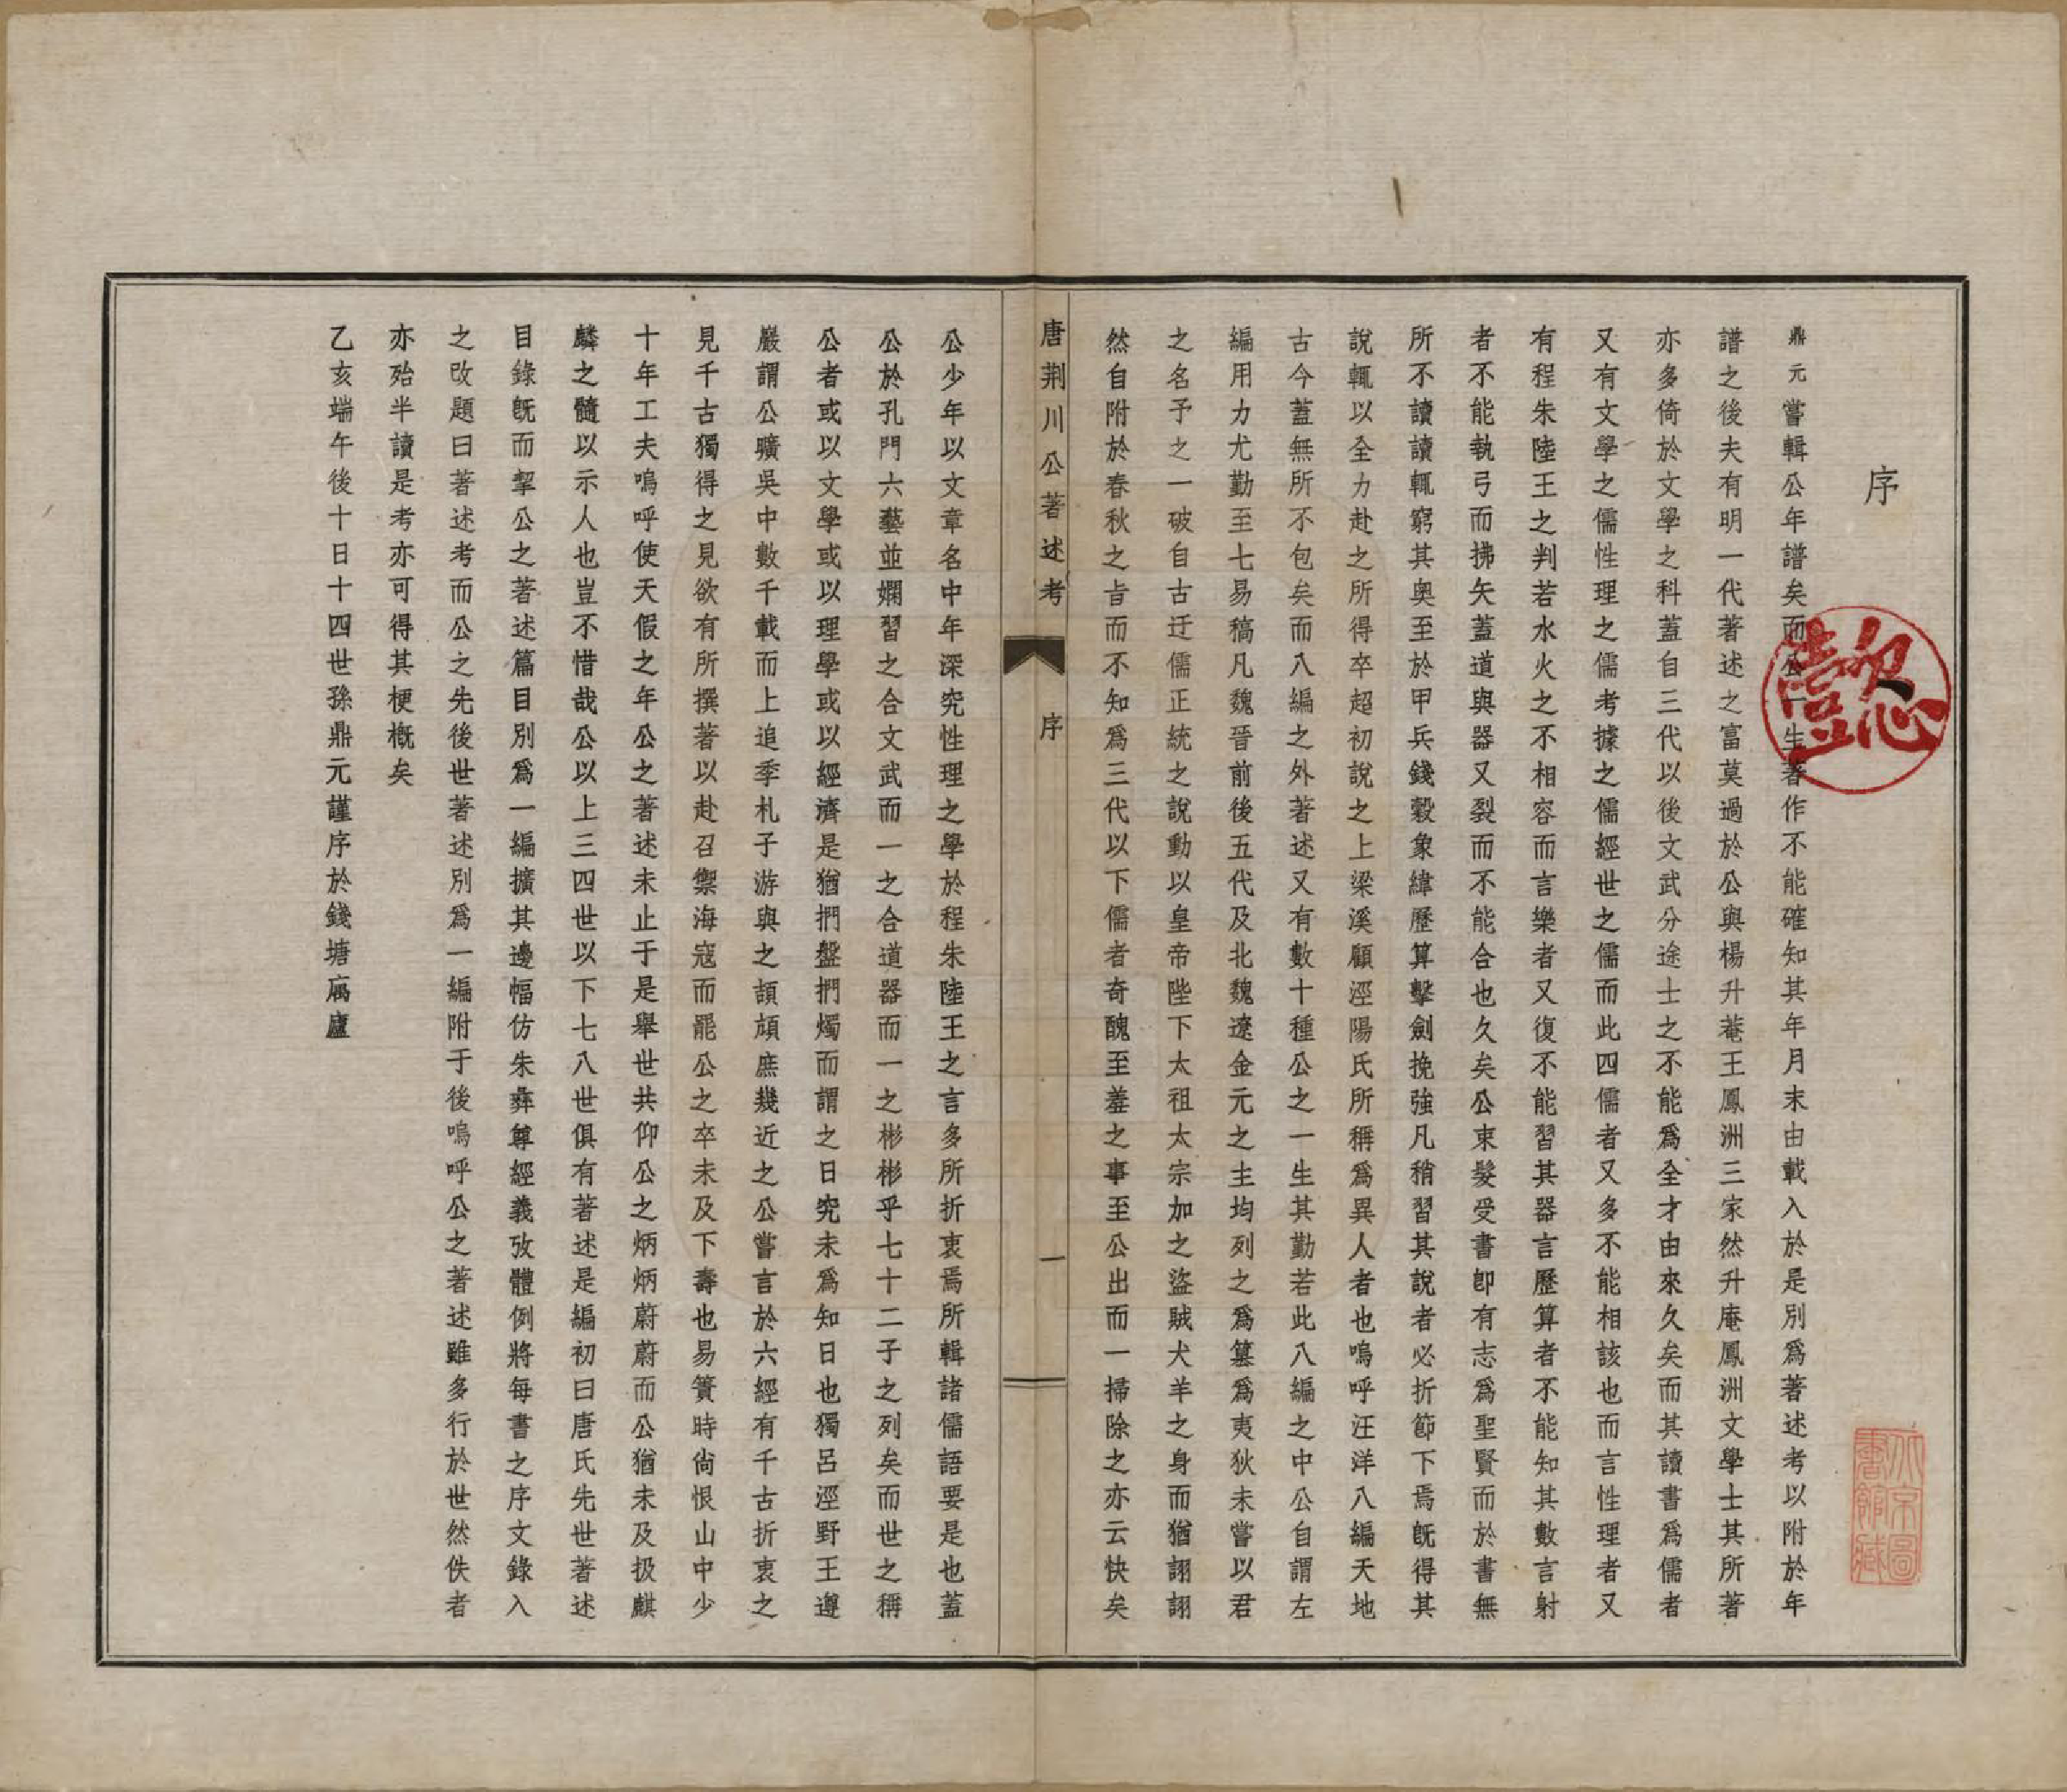 序
鼎元嘗輯公年譜矣而公一生著作不能確知其年月末由載入於是別爲著述考以附於年
譜之後夫有明一代著述之富莫過於公與楊升菴王鳳洲三家然升庵鳳洲文學士其所著
亦多倚於文學之科蓋自三代以後文武分途士之不能爲全才由來久矣而其讀書爲儒者
又有文學之儒性理之儒考據之儒經世之儒而此四儒者又多不能相該也而言性理者又
有程朱陸王之判若水火之不相容而言樂者又復不能習其器言歷算者不能知其數言射
者不能執弓而拂矢蓋道與器又裂而不能合也久矣公束髮受書卽有志爲聖賢而於書無
所不讀讀輒窮其奧至於甲兵錢穀象緯歷算擊劍挽強凡稍習其說者必折節下焉旣得其
說輒以全力赴之所得卒超初說之上梁溪顧涇陽氏所稱爲異人者也嗚呼汪洋八編天地
古今蓋無所不包矣而八編之外著述又有數十種公之一生其勤若此八編之中公自謂左
編用力尤勤至七易稿凡魏晉前後五代及北魏遼金元之主均列之爲簒爲夷狄未嘗以君
之名予之一破自古迂儒正統之說動以皇帝陛下太祖太宗加之盜賊犬羊之身而猶詡詡
然自附於春秋之旨而不知爲三代以下儒者奇醜至羞之事至公出而一掃除之亦云快矣
唐荆川公著述考
序
一
公少年以文章名中年深究性理之學於程朱陸王之言多所折衷焉所輯諸儒語要是也蓋
公於孔門六藝並嫻習之合文武而一之合道器而一之彬彬乎七十二子之列矣而世之稱
公者或以文學或以理學或以經濟是猶捫盤捫燭而謂之日究未爲知日也獨呂涇野王遵
巖謂公曠吳中數千載而上追季札子游與之頡頏庶幾近之公嘗言於六經有千古折衷之
見千古獨得之見欲有所撰著以赴召禦海寇而罷公之卒未及下壽也易簀時尙恨山中少
十年工夫嗚呼使天假之年公之著述未止于是舉世共仰公之炳炳蔚蔚而公猶未及扱麒
麟之髓以示人也豈不惜哉公以上三四世以下七八世俱有著述是編初曰唐氏先世著述
目錄旣而挈公之著述篇目別爲一編擴其邊幅仿朱彝尊經義攷體例將每書之序文錄入
之改題曰著述考而公之先後世著述別爲一編附于後嗚呼公之著述雖多行於世然佚者
亦殆半讀是考亦可得其梗概矣
乙亥端午後十日十四世孫鼎元謹序於錢塘寓廬